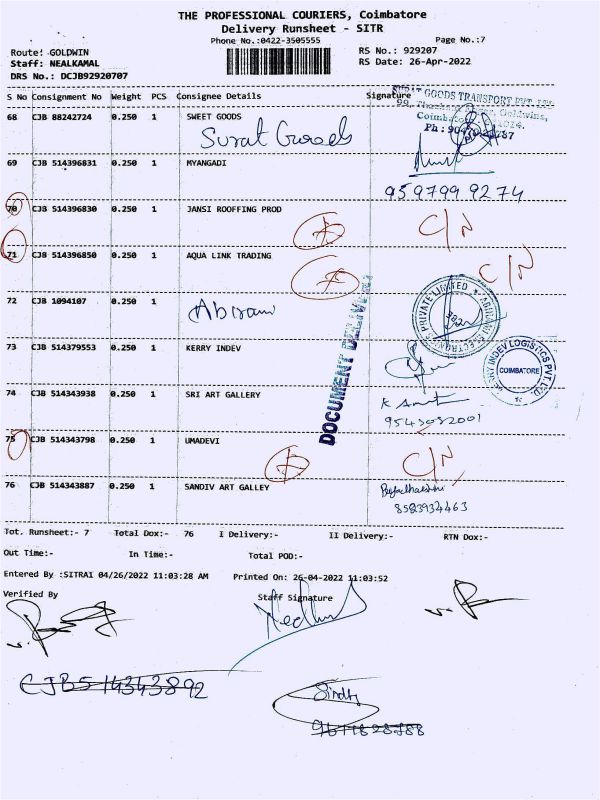 THE PROFESSIONAL COURIERS, Coimbatore
Delivery Runsheet - SITR
Phone No.:0422-3505555
Page No.:7
Route: GOLDWIN
RS No.: 929207
Staff: NEALKAMAL
RS Date: 26-Apr-2022
DRS No.: DCJB92920707
S No Consignment No Weight PCS Consignee Details Signature
SURAT GOODS TRANSPORT PVT. LTD.
Goldwins,
68 CJB 88242724 0.250 1 SWEET GOODS
Surat Goods
69 CJB 514396831 0.250 1 MYANGADI
9597999274
70 CJB 514396830 0.250 1 JANSI ROOFFING PROD
C/N
71 CJB 514396850 0.250 1 AQUA LINK TRADING
C/N
72 CJB 1094107 0.250 1
Abirami
PRIVATE LIMITED
73 CJB 514379553 0.250 1 KERRY INDEV
KERRY INDEV LOGISTICS PVT LTD.
COIMBATORE
DOCUMENT DELIVERY
74 CJB 514343938 0.250 1 SRI ART GALLERY
9543082001
75 CJB 514343798 0.250 1 UMADEVI
C/N
76 CJB 514343887 0.250 1 SANDIV ART GALLEY
8583934463
Tot. Runsheet:- 7 Total Dox:- 76 I Delivery:- II Delivery:- RTN Dox:-
Out Time:- In Time:- Total POD:-
Entered By :SITRAI 04/26/2022 11:03:28 AM Printed On: 26-04-2022 11:03:52
Verified By Staff Signature
CJB514343892
Sindhu